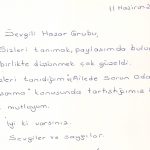 11 Haziran 2
Sevgili Hazar Grubu,
Sizleri tanımak, paylaşımda bulu
birlikte düşünmek çok güzeldi.
leri tanıdığım "Ailede Sorun Oda
konusunda tartıştığımız i
mutluyum.
İyi ki varsınız.
Sevgiler ve saygılar.